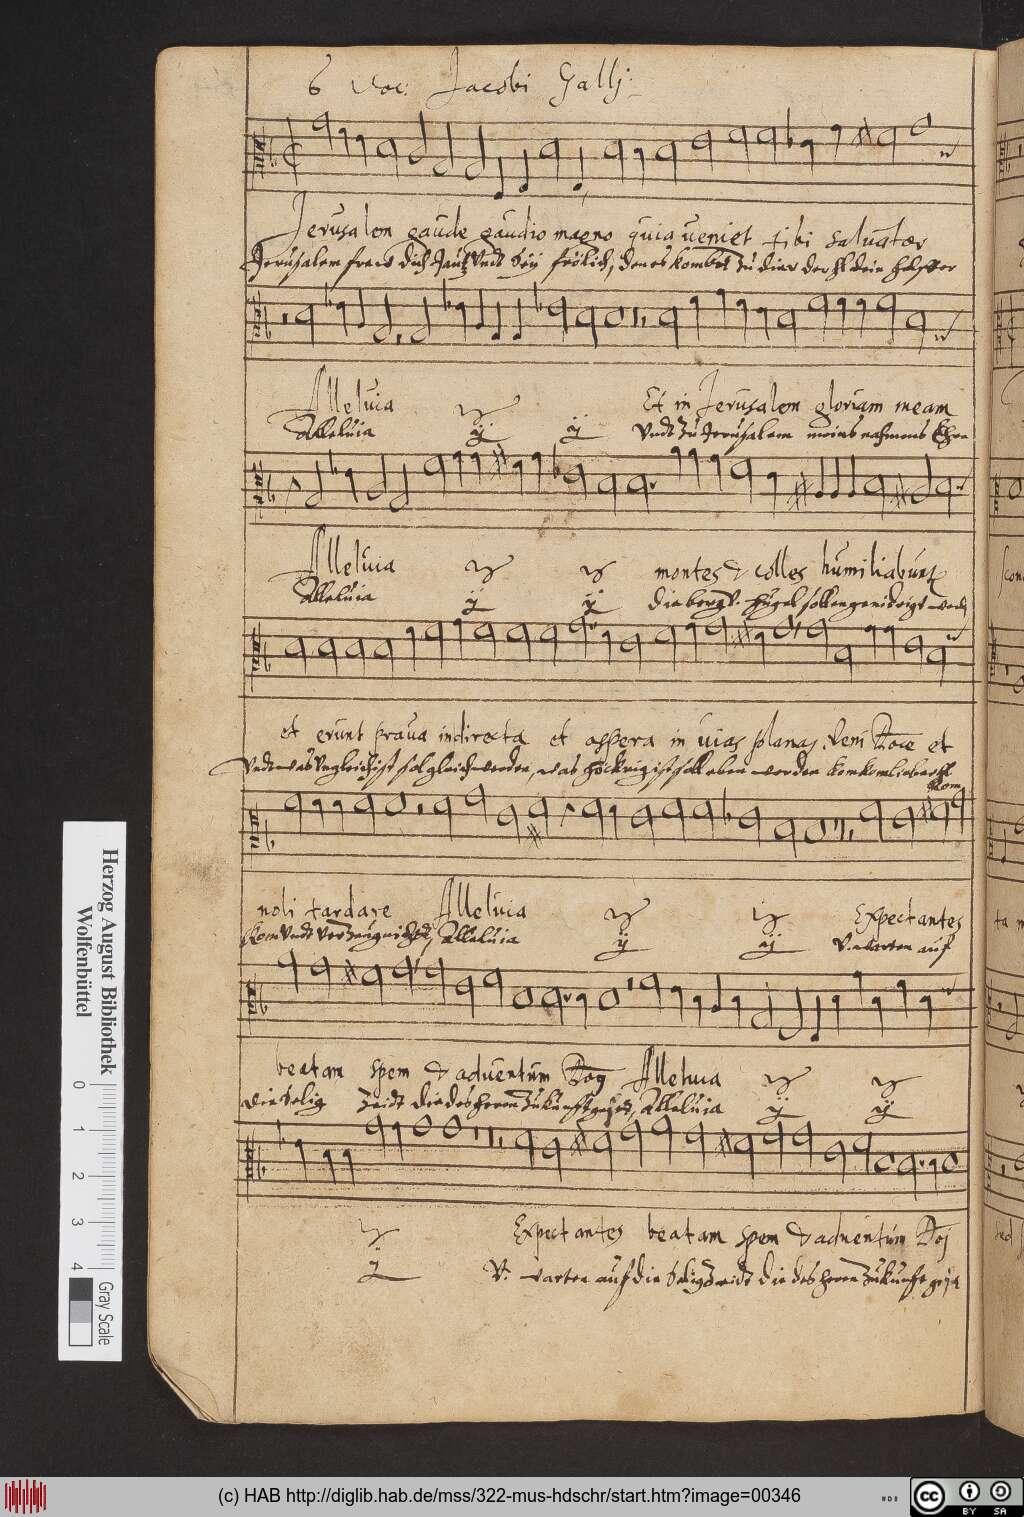 6 Voc: Jacobi Gallj:
Jerusalem gaude gaudio magno quia veniet tibi saluator
Jerusalem frew dich Jautz undt sey frölich, den es kombt zu dier der hl dein helffer
Alleluia ij ij Et in Jerusalem gloriam meam
Alleluia ij ij Undt zu Jerusalem meins nahmens Ehre
Alleluia ij ij montes & colles humiliabunt
Alleluia ij ij Die berg V. hügel sollen genidrigt werd
et erunt praua in directa et aspera in vias planas, Veni Dn̄e et
Undt was Ungleich ist sol gleich werden, was höckrig ist soll eben werden kom kom lieber hl
kom
noli tardare Alleluia ij ij Expectantes
kom Undt verzeug nicht, Alleluia ij ij V. warten auf
beatam spem & aduentum Alleluia ij ij
die selig Zeidt die des herren zukunft Alleluia ij ij
ij Expectantes beatam spem & aduentum
ij V. warten auf die selig Zeidt die des herren zukunft
Herzog August Bibliothek
Wolfenbüttel
0 1 2 3 4
Gray Scale
(c) HAB http://diglib.hab.de/mss/322-mus-hdschr/start.htm?image=00346
cc BY SA